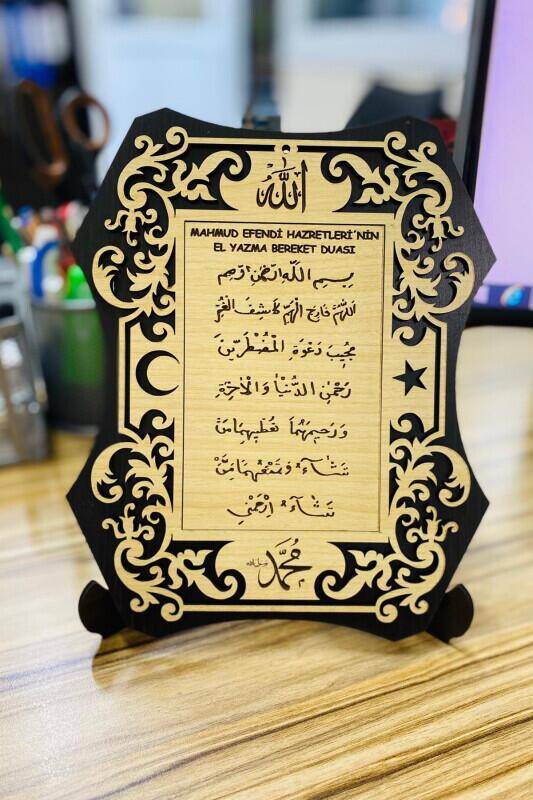 الله
MAHMUD EFENDİ HAZRETLERİ'NİN
EL YAZMA BEREKET DUASI
بِسْمِ اللّٰهِ الرَّحْمٰنِ الرَّحِيمِ
اَللّٰهُمَّ فَارِجَ الْهَمِّ كَاشِفَ الْغَمِّ
مُجِيبَ دَعْوَةِ الْمُضْطَرِّينَ
رَحْمٰنَ الدُّنْيَا وَالْاٰخِرَةِ
وَرَحِيمَهُمَا تُعْطِيهِمَا مَنْ
تَشَاءُ وَتَمْنَعُهُمَا مِمَّنْ
تَشَاءُ اِرْحَمْنِي
محمد